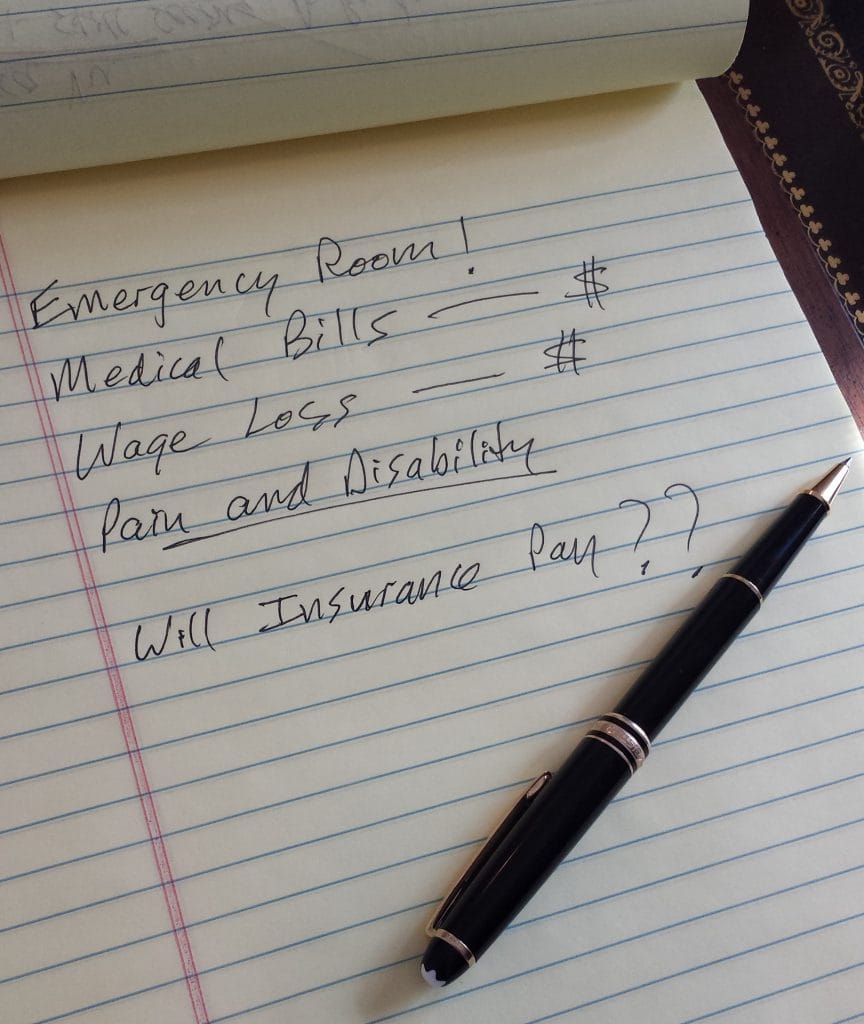 Emergency Room!
Medical Bills — $
Wage Loss — $
Pain and Disability
Will Insurance Pay??